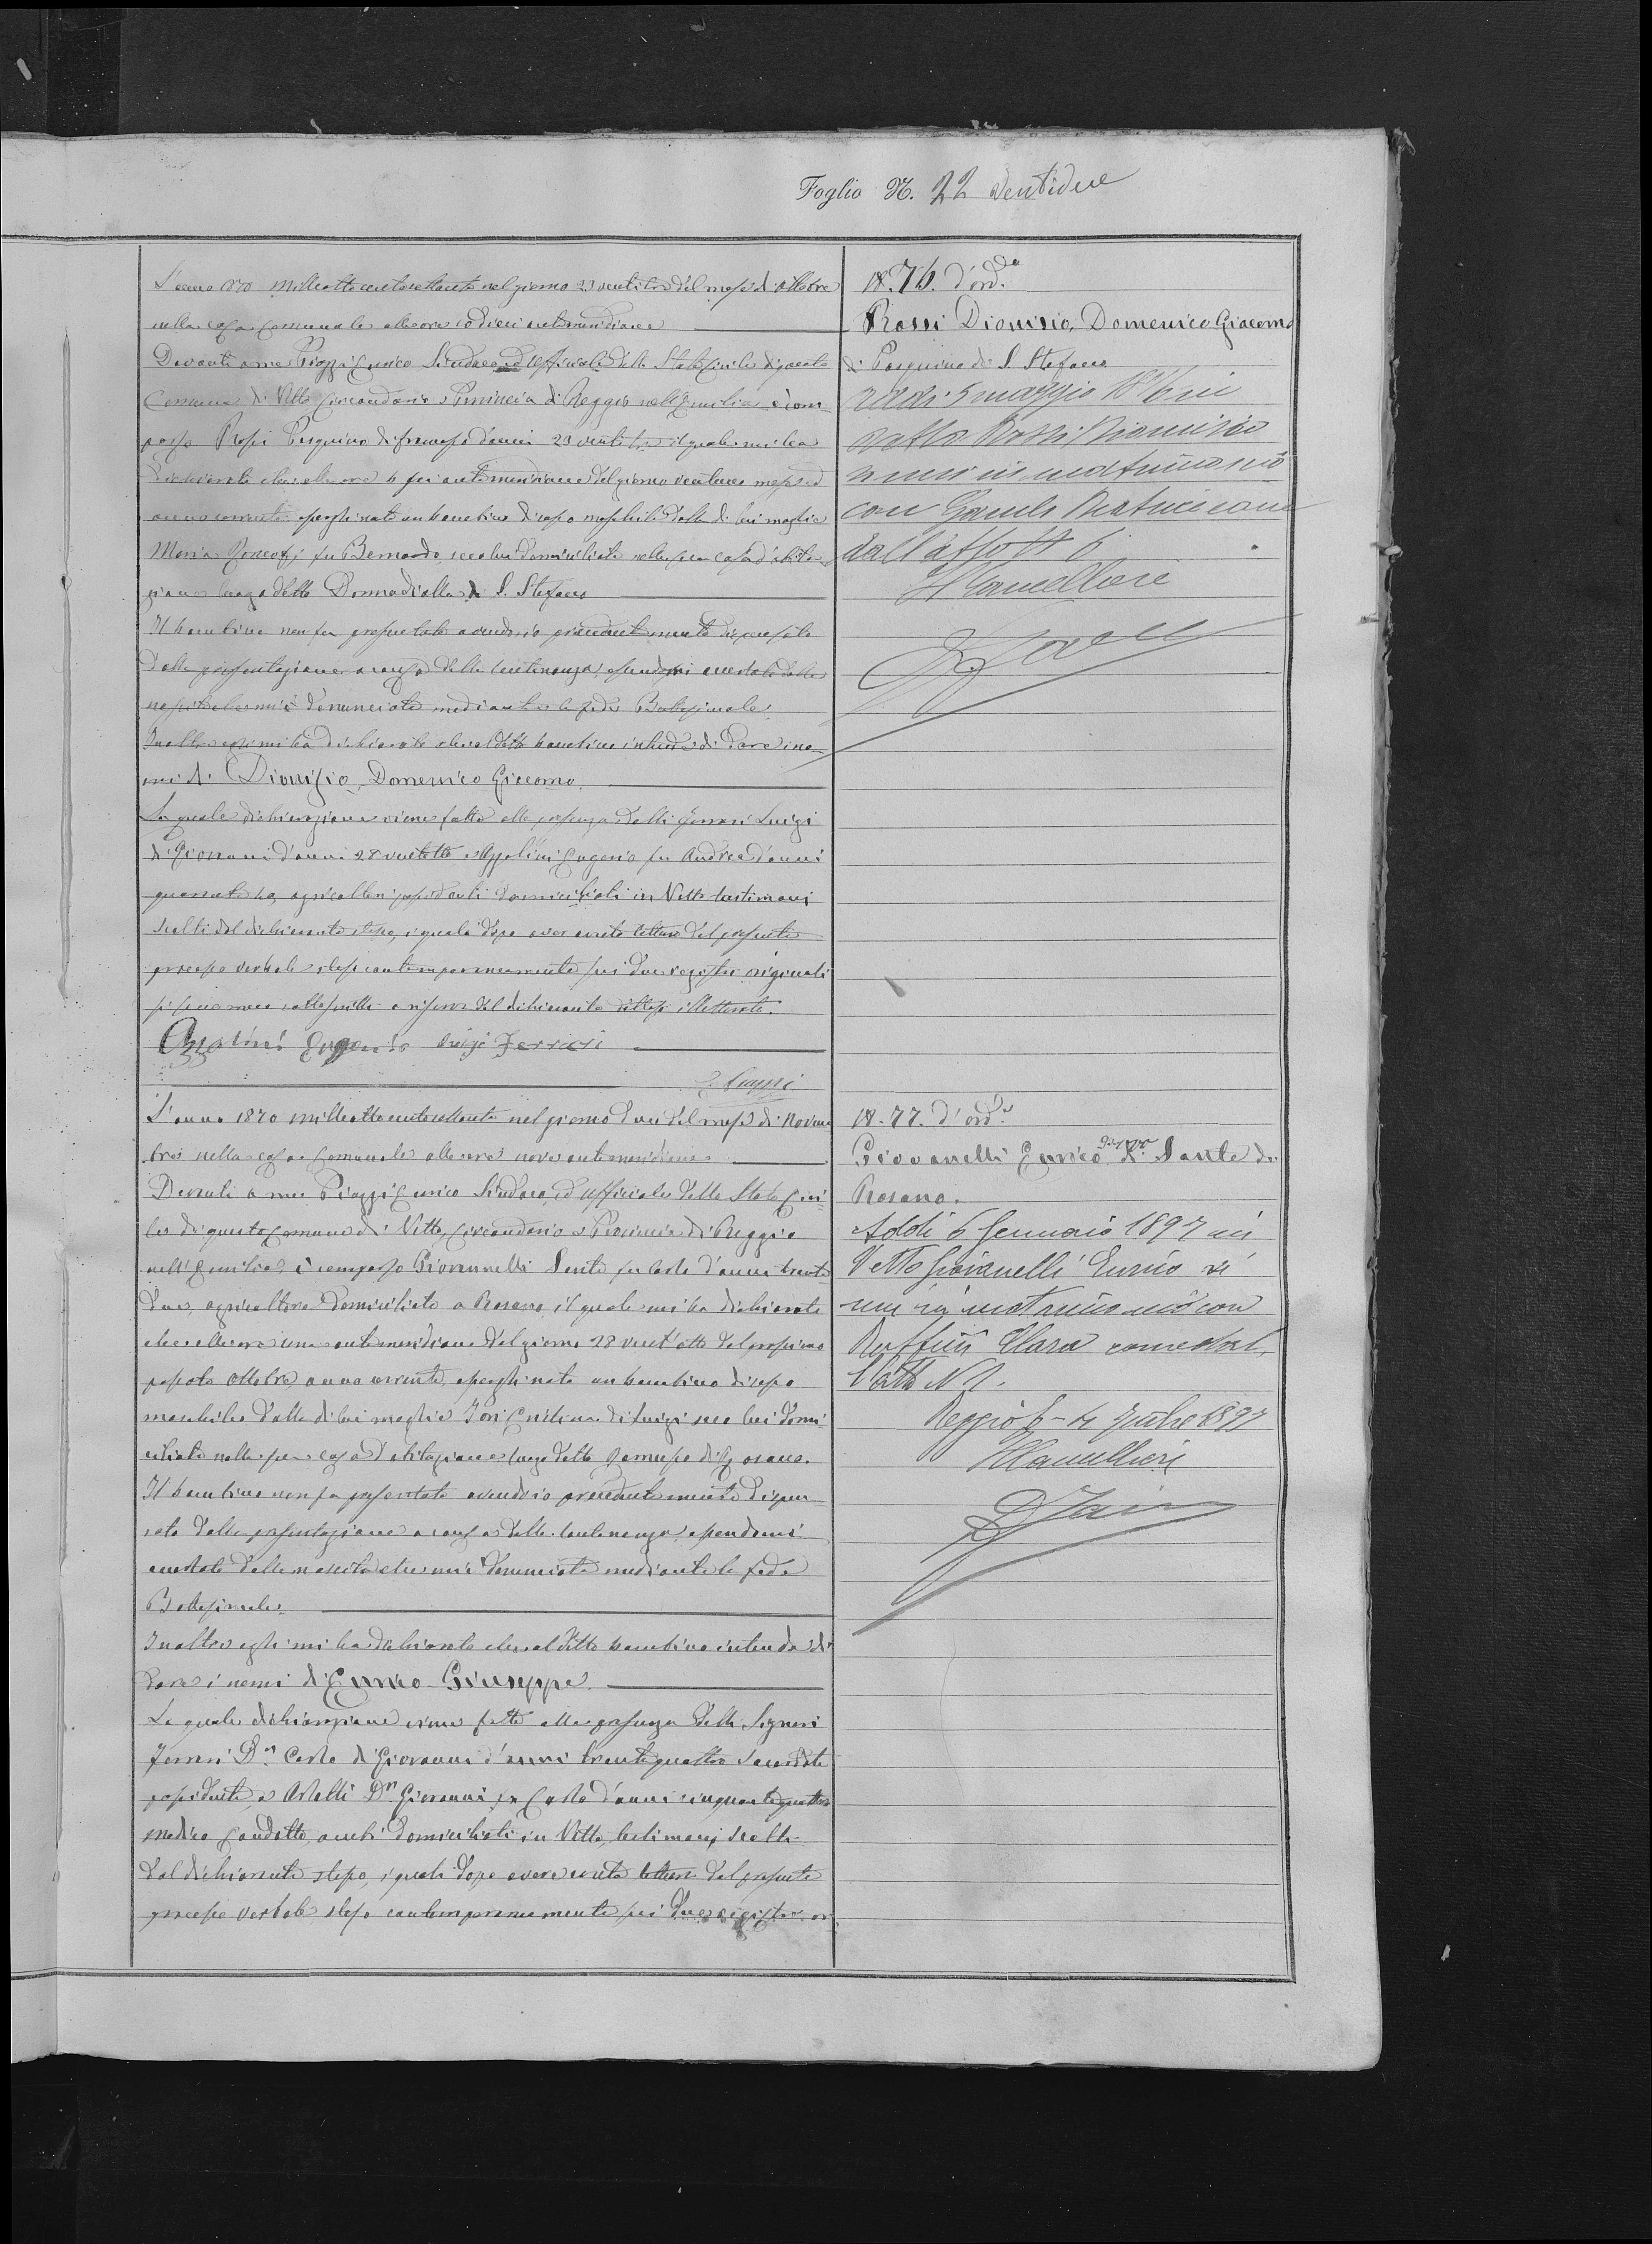 Foglio N. 22 Ventidue
L'anno 1870 milleottocentosettanta nel giorno 23 ventitre del mese di ottobre
nella casa Comunale alle ore 10 dieci antimeridiane
Davanti a me Piazzi Enrico Sindaco ed Uffiziale dello Stato Civile di questo
Comune di Vetto Circondario e Provincia di Reggio nell'Emilia è com-
parso Rossi Pasquino di Francesco d'anni 23 ventitre il quale mi ha
dichiarato che alle ore 6 sei antimeridiane del giorno ventuno mese ed
anno corrente gli è nato un bambino di sesso maschile dalla di lui moglie
Maria fu Bernardo seco lui domiciliata nella sua casa d'abita-
zione luogo detto Donnadiolla di S. Stefano
Il bambino non fu presentato avendolo precedentemente dispensato
dalla presentazione a causa della lontananza, essendomi accertato della
nascita denunciata mediante la fede Battesimale
Inoltre egli mi ha dichiarato che al detto bambino intende di dare i no-
mi di Dionisio, Domenico Giacomo.
La quale dichiarazione viene fatta alla presenza delli Ferrari Luigi
di Giovanni d'anni 28 ventotto e Azzolini Eugenio fu Andrea d'anni
quaranta agricoltori possidenti domiciliati in Vetto testimoni
scelti dal dichiarante stesso, i quali dopo aver avuto lettura del presente
processo verbale steso contemporaneamente sui due registri originali
si sono meco sottoscritti a riserva del dichiarante illetterato.
Azzolini Eugenio Luigi Ferrari
E. Piazzi
L'anno 1870 milleottocentosettanta nel giorno due del mese di Novem
bre nella casa Comunale alle ore nove antimeridiane
Davanti a me Piazzi Enrico Sindaco, ed uffiziale dello Stato Civi-
le di questo Comune di Vetto, Circondario e Provincia di Reggio
nell'Emilia è comparso Giovannelli Sante fu Carlo d'anni trenta
due, agricoltore domiciliato a Rosano, il quale mi ha dichiarato
che alle ore una antimeridiane del giorno 28 vent'otto del prossimo
passato ottobre anno corrente, gli è nato un bambino di sesso
maschile dalla di lui moglie Jori Cristina di Luigi seco lui domi
ciliata nella sua casa d'abitazione luogo detto di Rosano.
Il bambino non fu presentato avendolo precedentemente dispen
sato dalla presentazione a causa della lontananza, essendomi
accertato della nascita che mi è denunciata mediante la fede
Battesimale.
Inoltre egli mi ha dichiarato che al detto bambino intende di
dare i nomi di Enrico Giuseppe.
La quale dichiarazione viene fatta alla presenza delli Signori
Ferrari Dn Carlo di Giovanni d'anni trentaquattro Sacerdote
possidente, e Dn Giovanni fu Carlo d'anni cinquantaquattro
medico Condotto, ambi domiciliati in Vetto, testimoni scelti
dal dichiarante stesso, i quali dopo avere avuto lettura del presente
processo verbale steso contemporaneamente sui due registri or
N. 76. d'ord.
Rossi Dionisio, Domenico Giacomo
di Pasquino di S. Stefano
Addì 5 maggio in
Vetto Rossi Dionisio
si unì in matrimonio
con
dall'atto N 6
N. 77. d'ord.
Giovanelli Enrico Giuseppe di Sante di
Rosano.
Addì 6 Gennaio 1897 in
Vetto Giovanelli Enrico si
unì in matrimonio con
Ruffini Clara come dal
l'atto N 1.
Reggio E. 1897